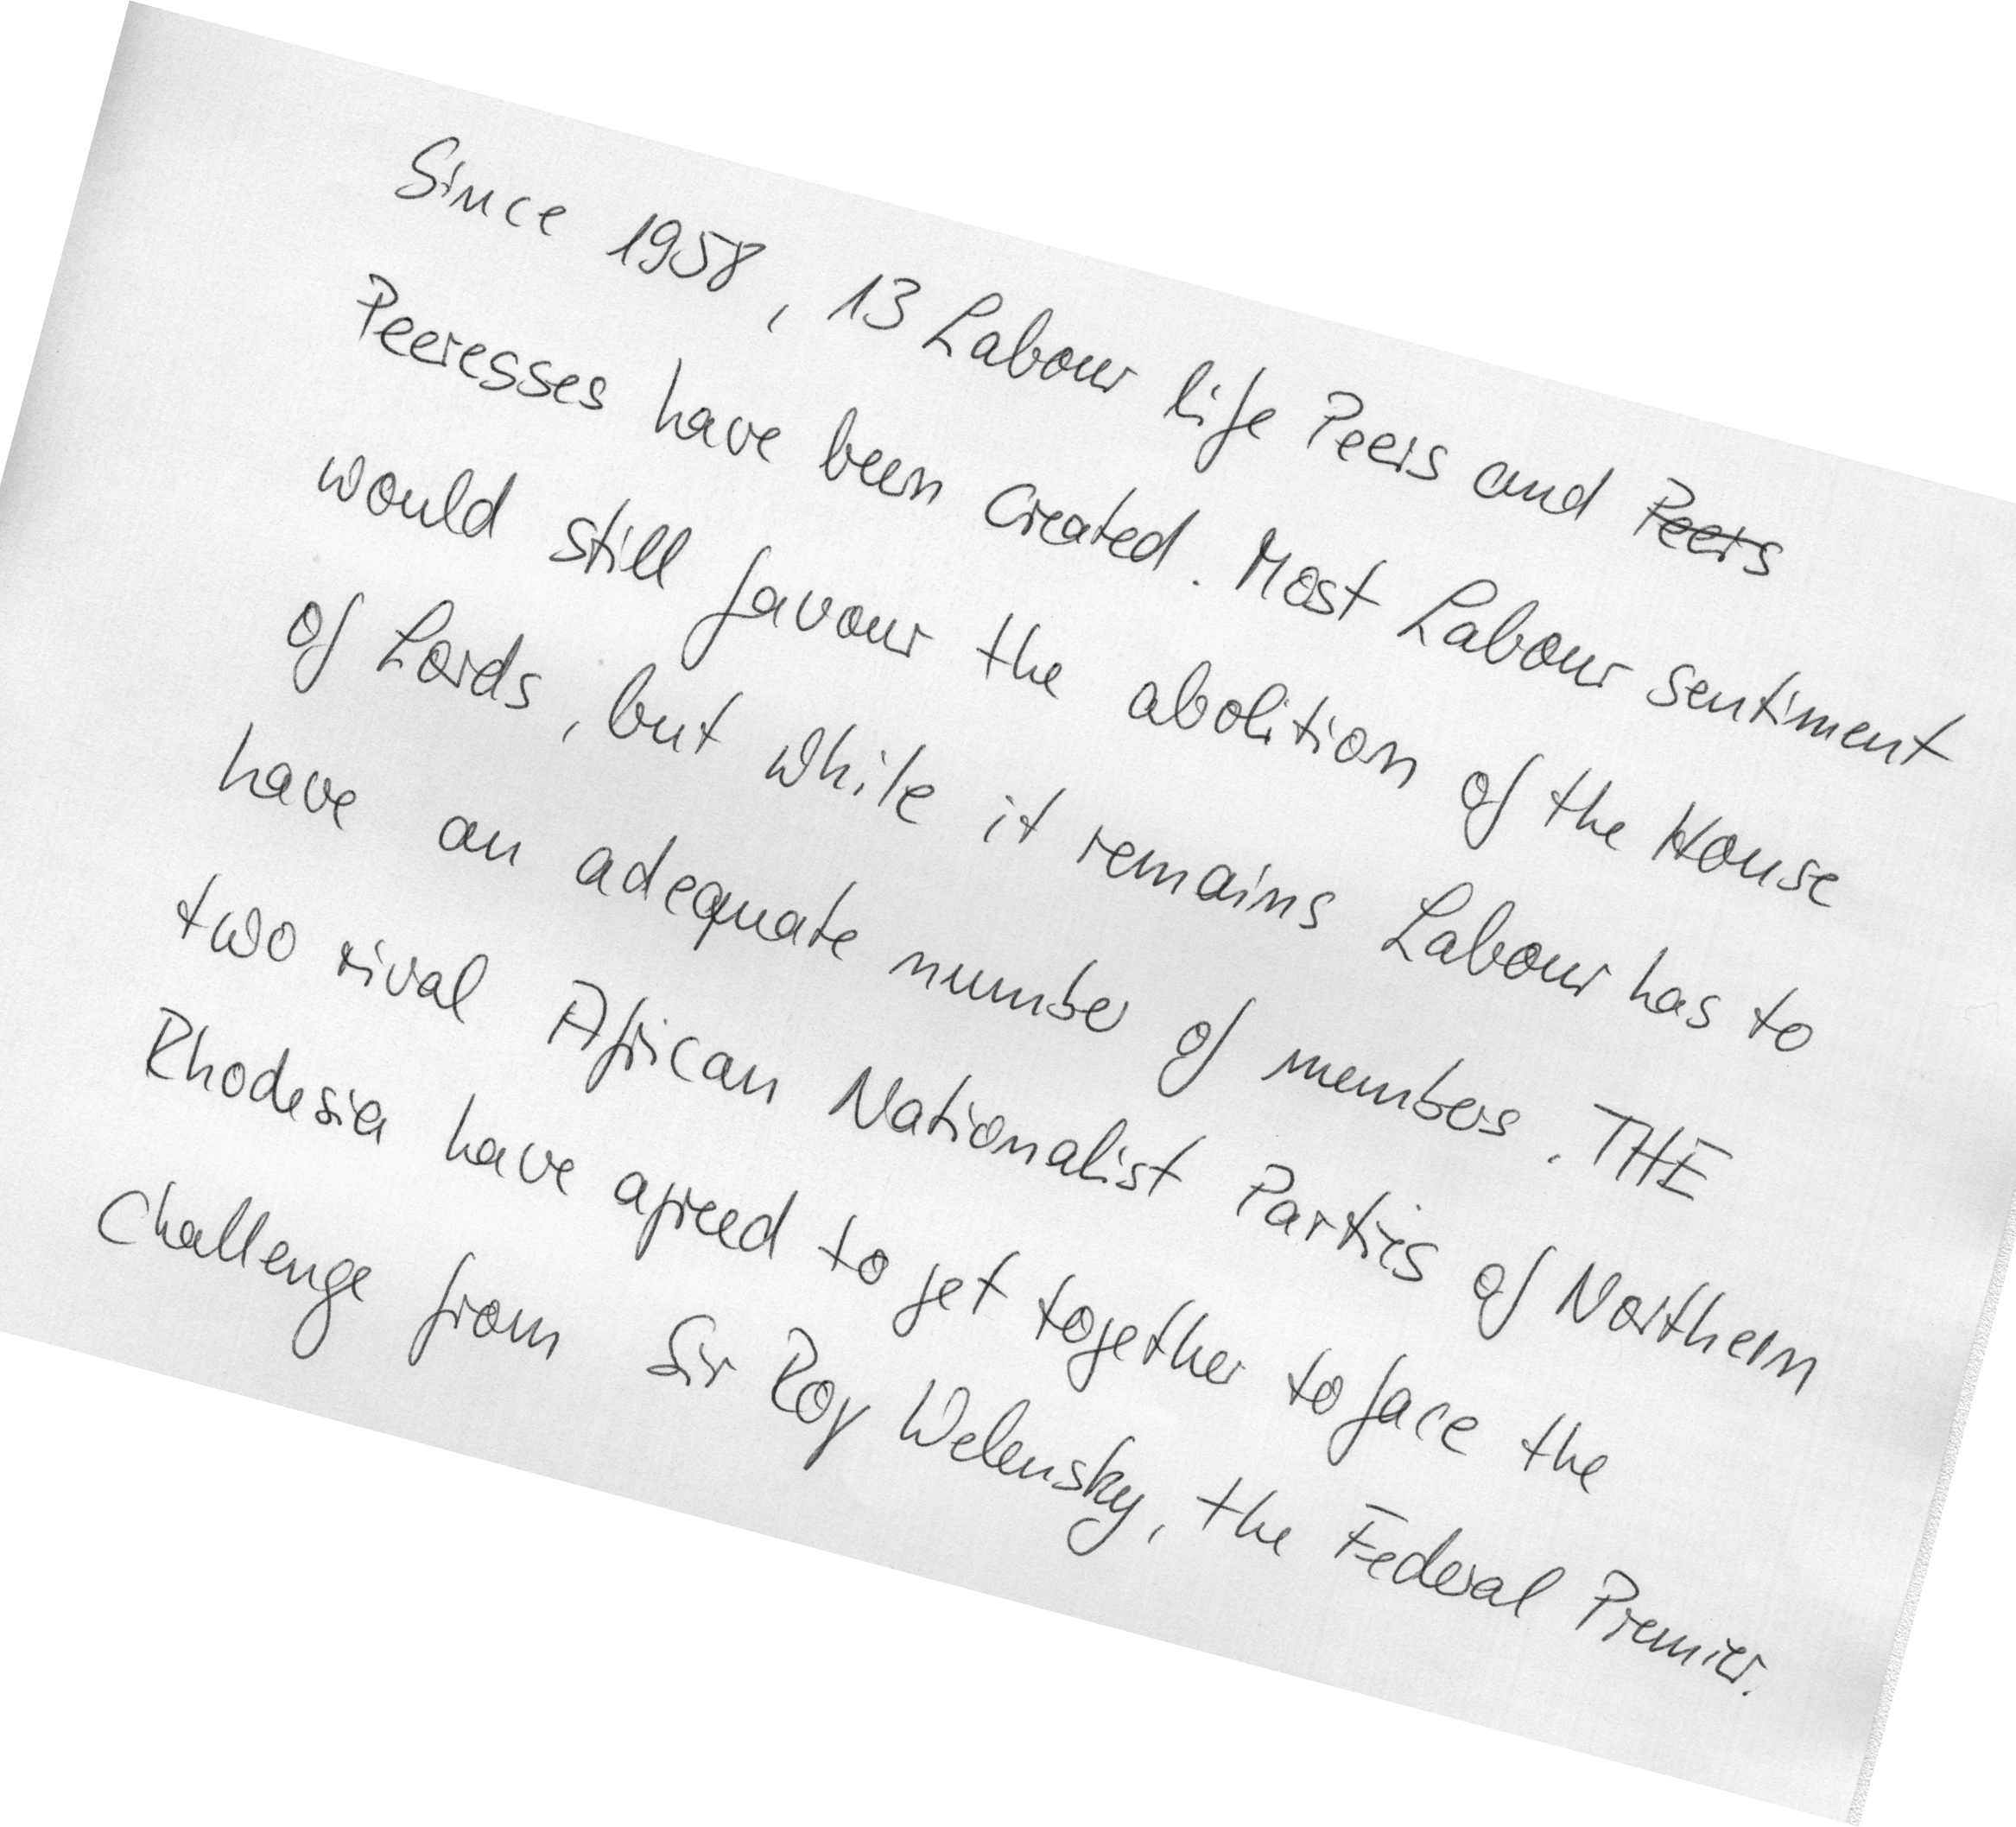 Since 1958, 13 Labour life Peers and Peers
Peeresses have been created. Most Labour sentiment
would still favour the abolition of the House
of Lords, but while it remains Labour has to
have an adequate number of members. THE
two rival African Nationalist Parties of Northern
Rhodesia have agreed to get together to face the
Challenge from Sir Roy Welensky, the Federal Premier.